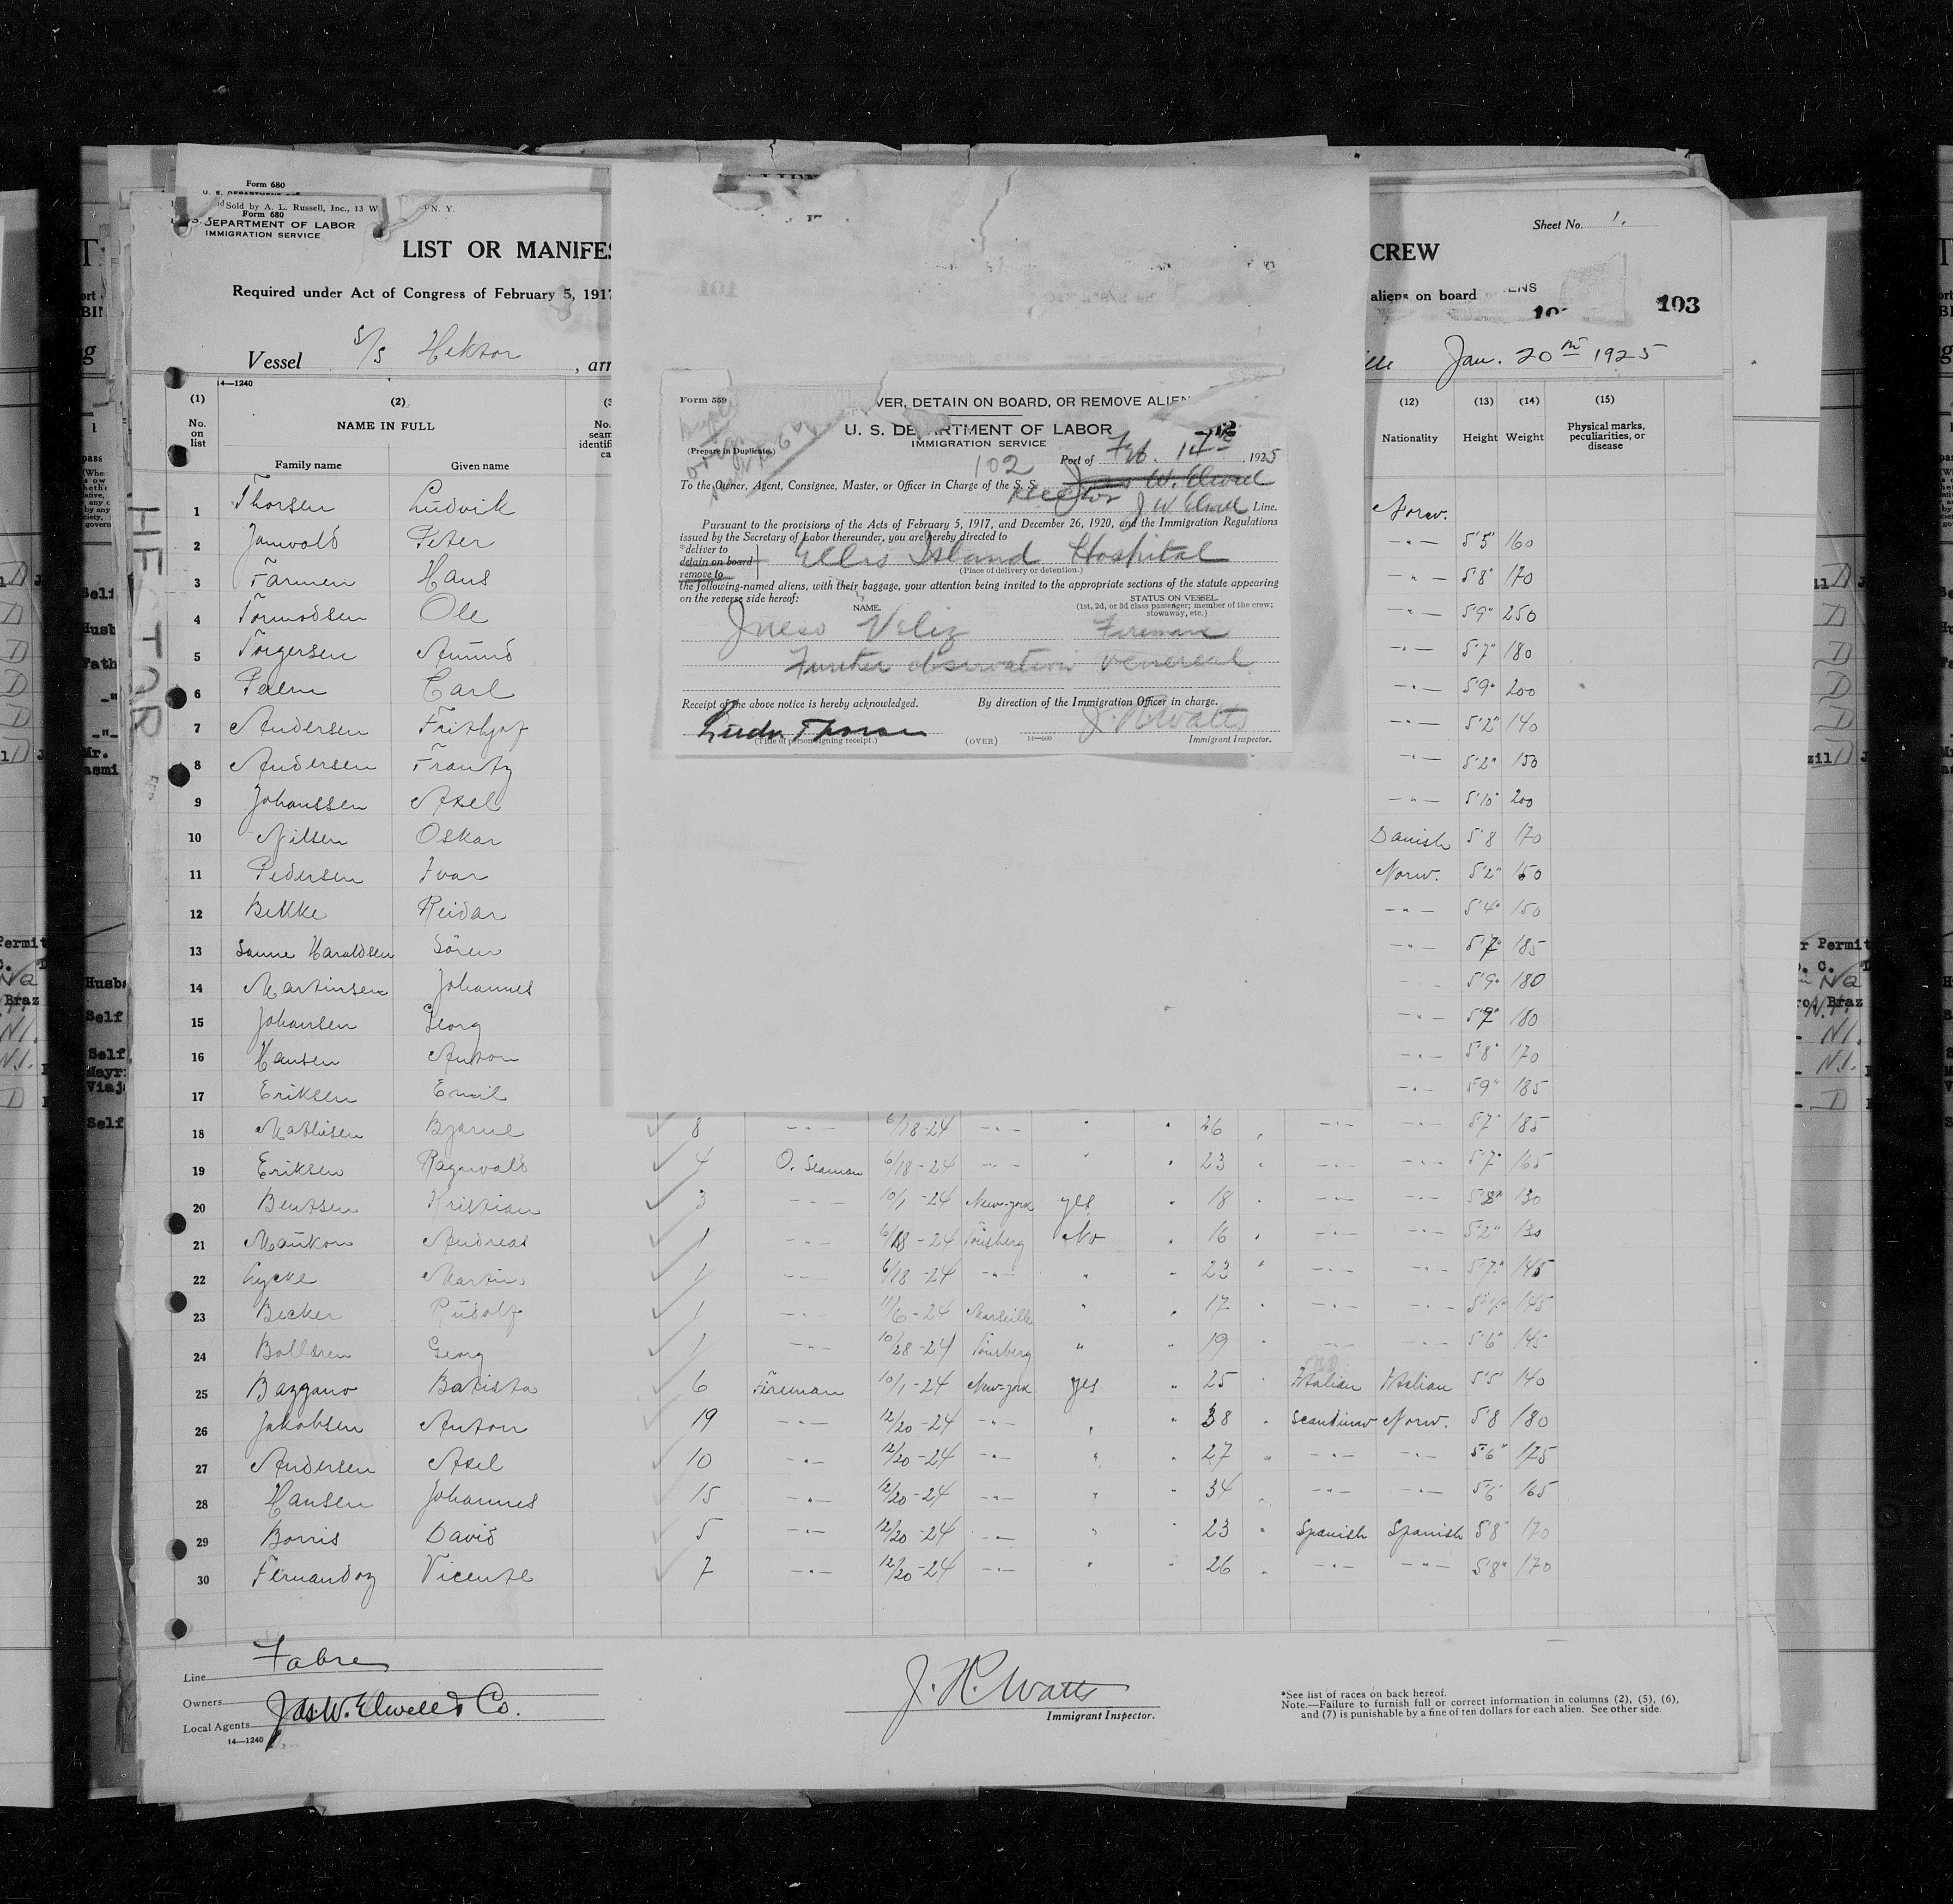 Form 680
Sold by A. L. Russell, Inc., 13 W N. Y.
Form 680
DEPARTMENT OF LABOR
IMMIGRATION SERVICE
Sheet No. 1.
LIST OR MANIFES
CREW
Required under Act of Congress of February 5, 1917
aliens on board
103
Vessel S/S Hektor , arr
Jan. 20th 1925
14—1240
(1) (2) (12) (13) (14) (15)
No. on list NAME IN FULL Nationality Height Weight Physical marks, peculiarities, or disease
Family name Given name
HEKTOR
1 Thorsen Ludvik Norw.
2 Peter -"- 5'5" 160
3 Farmen Hans -"- 5'8" 170
4 Tormodsen Ole -"- 5'9" 250
5 Torgersen -"- 5'7" 180
6 Palm Carl -"- 5'9" 200
7 Andersen Frithjof -"- 5'2" 140
8 Andersen Frantz -"- 5'2" 150
9 Johanssen Axel -"- 5'10" 200
10 Nilsen Oskar Danish 5'8 170
11 Pedersen Ivar Norw. 5'2" 150
12 Bekke Reidar -"- 5'4" 150
13 Sanne Haraldsen Sören -"- 5'7" 185
14 Martinsen Johannes 5'9" 180
15 Johansen Georg -"- 180
16 Hansen Anton -"- 5'8" 170
17 Eriksen Emil -"- 5'9" 185
18 Mathisen Bjarne 8 -"- 6/18-24 -"- " " 26 " -"- -"- 5'7" 185
19 Eriksen Ragnvald 4 O. Seaman 6/18-24 -"- " " 23 " -"- -"- 5'7" 165
20 Bentsen Kristian 3 -"- 10/1-24 New-york yes " 18 " -"- -"- 130
21 Andreas 1 -"- 6/18-24 Tönsberg No " 16 " -"- -"- 5'2" 130
22 Martin 1 -"- 6/18-24 -"- " " 23 " -"- -"- 5'7" 145
23 Becker Rudolf 1 -"- 11/6-24 Marseille " " 17 " -"- -"- 145
24 Georg 1 -"- 10/28-24 Tönsberg " " 19 " -"- -"- 5'6" 145
25 Bazzano Batista 6 Fireman 10/1-24 New-york yes " 25 " Italian Italian 5'5" 140
26 Jakobsen Anton 19 -"- 12/20-24 -"- " " 38 " Scandinav Norw. 5'8 180
27 Andersen Axel 10 -"- 12/20-24 -"- " " 27 " -"- -"- 5'6" 175
28 Hansen Johannes 15 -"- 12/20-24 -"- " " 34 " -"- -"- 5'6" 165
29 Borris David 5 -"- 12/20-24 -"- " " 23 " Spanish Spanish 5'8" 170
30 Fernandoz Vicente 7 -"- 12/20-24 -"- " " 26 " -"- -"- 5'8" 170
Form 559
VER, DETAIN ON BOARD, OR REMOVE ALIEN
U. S. DEPARTMENT OF LABOR
IMMIGRATION SERVICE
(Prepare in Duplicate)
102 Port of Feb. 14th, 1925
To the Owner, Agent, Consignee, Master, or Officer in Charge of the S. S. Jas W. Elwell
Hector J W Elwell Line.
Pursuant to the provisions of the Acts of February 5, 1917, and December 26, 1920, and the Immigration Regulations
issued by the Secretary of Labor thereunder, you are hereby directed to
*deliver to
detain on board
remove to
Ellis Island Hospital
(Place of delivery or detention.)
the following-named aliens, with their baggage, your attention being invited to the appropriate sections of the statute appearing
on the reverse side hereof:
NAME.
STATUS ON VESSEL.
(1st, 2d, or 3d class passenger; member of the crew; stowaway, etc.)
Veliz Fireman
Further observation venereal
Receipt of the above notice is hereby acknowledged.
By direction of the Immigration Officer in charge.
J. H. Watts
(Title of person signing receipt.)
(OVER)
Immigrant Inspector.
Line Fabre
Owners
Local Agents Jas. W. Elwell & Co.
14—1240
J. H. Watts
Immigrant Inspector.
*See list of races on back hereof.
Note.—Failure to furnish full or correct information in columns (2), (5), (6),
and (7) is punishable by a fine of ten dollars for each alien. See other side.